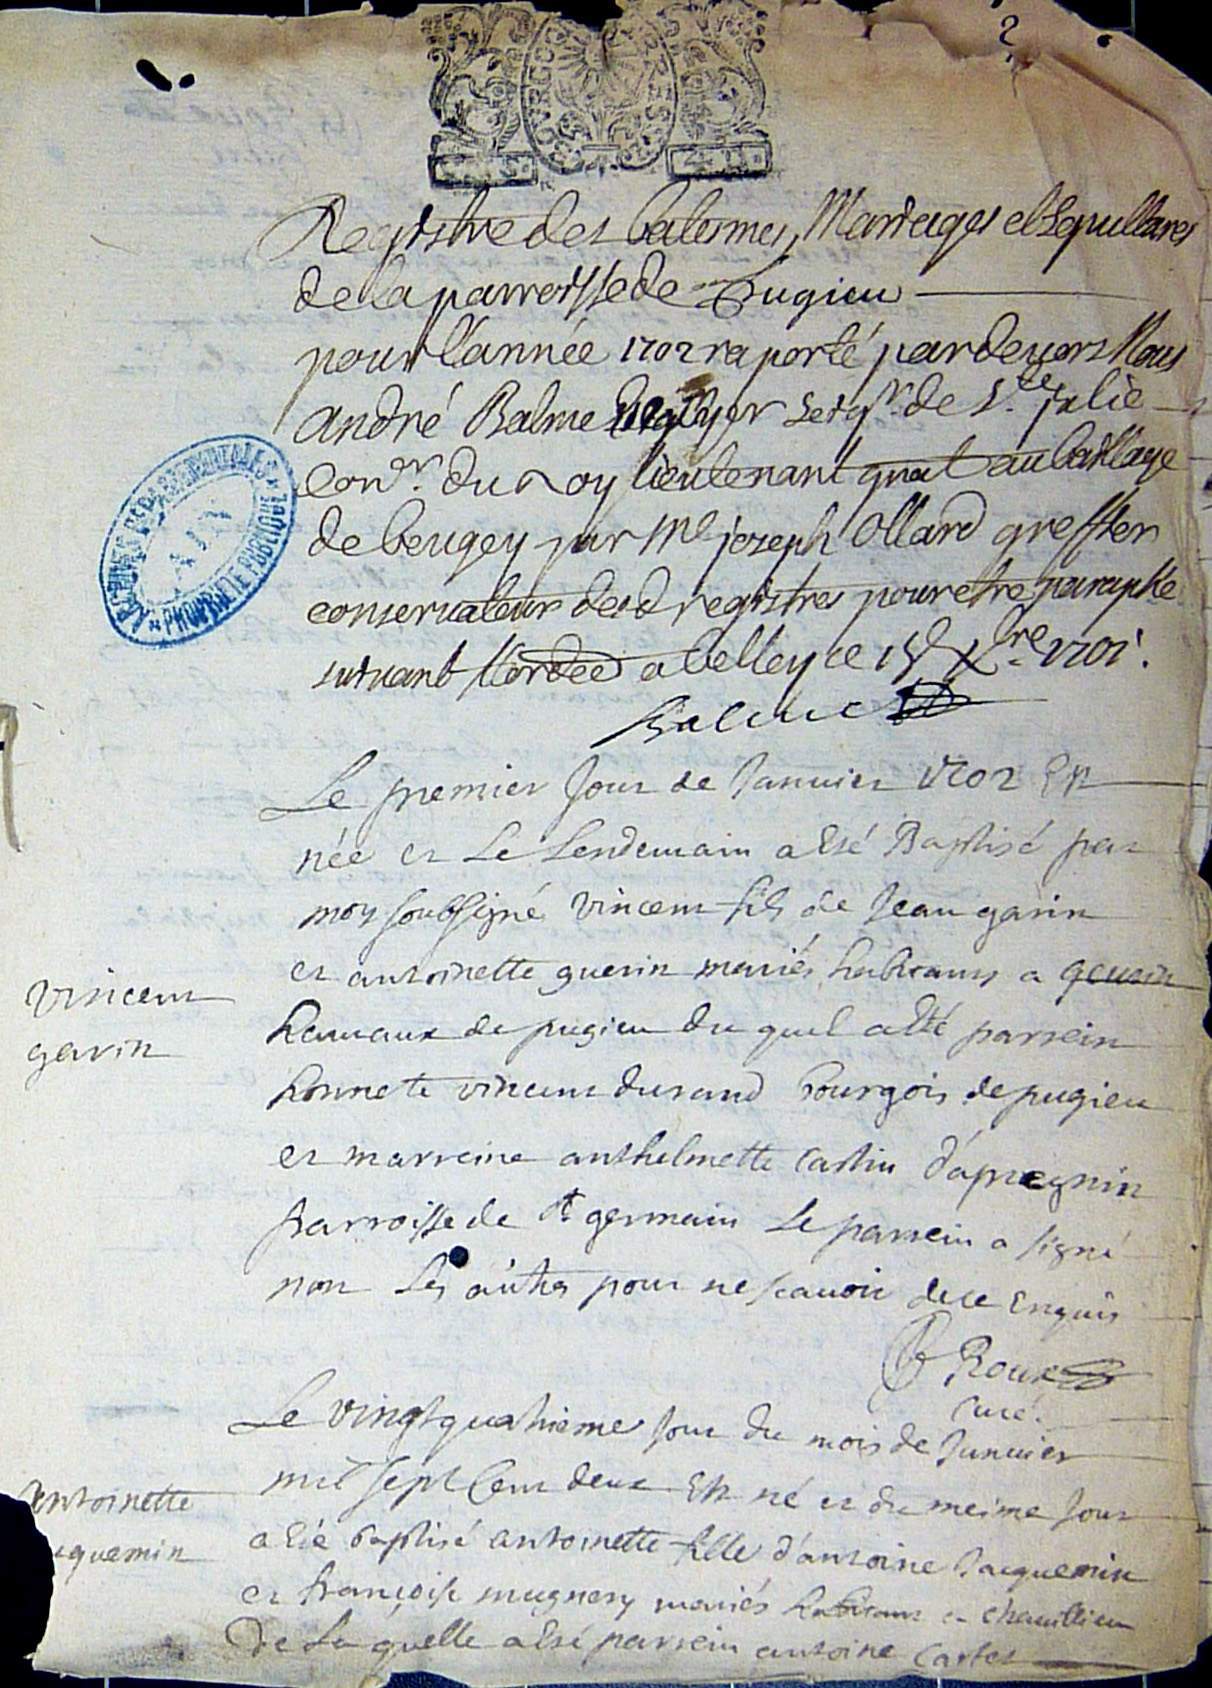 2
Registre des batesmes, Mariages et sepultures
de la parroisse de Pugieu
pour l'année 1702 raporté pardevers Nous
andré Balme seigr. de Ste. julie
Conser. du Roy lieutenant gnal au bailliage
de beugey par Me jozeph Ollard greffier
conservateur desd registres pour etre paraphé
suivant a belley ce Xbre 1701.
Balme
Le premier Jour de Januier 1702 Est
née et Le Lendemain a Esté Baptisé par
moy soubsigné vincent fils de Jean gavin
et antoinette guerin mariés habitans a
hameaux de pugieu du quel a été parrein
honnete vincent durand bourgois de pugieu
et marreine anthelmette d'apregnin
parroisse de st germain Le parrein a signé
non Les autres pour ne scavoir de ce Enquis
Roux
Curé.
vincent
gavin
Le vingtquatrieme Jour du mois de Januier
mil sept Cent deux Est né et du mesme Jour
a été baptisé antoinette fille d'antoine Jacquemin
et françoise mugnery mariés habitans a
De Laquelle a Esté parrein antoine
antoinette
aquemin
ARCHIVES DÉPARTEMENTALES
AIN
PROPRIÉTÉ PUBLIQUE